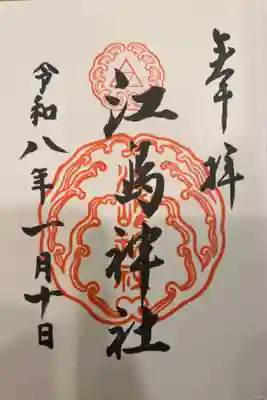 奉拝
江島神社
令和八年一月十日